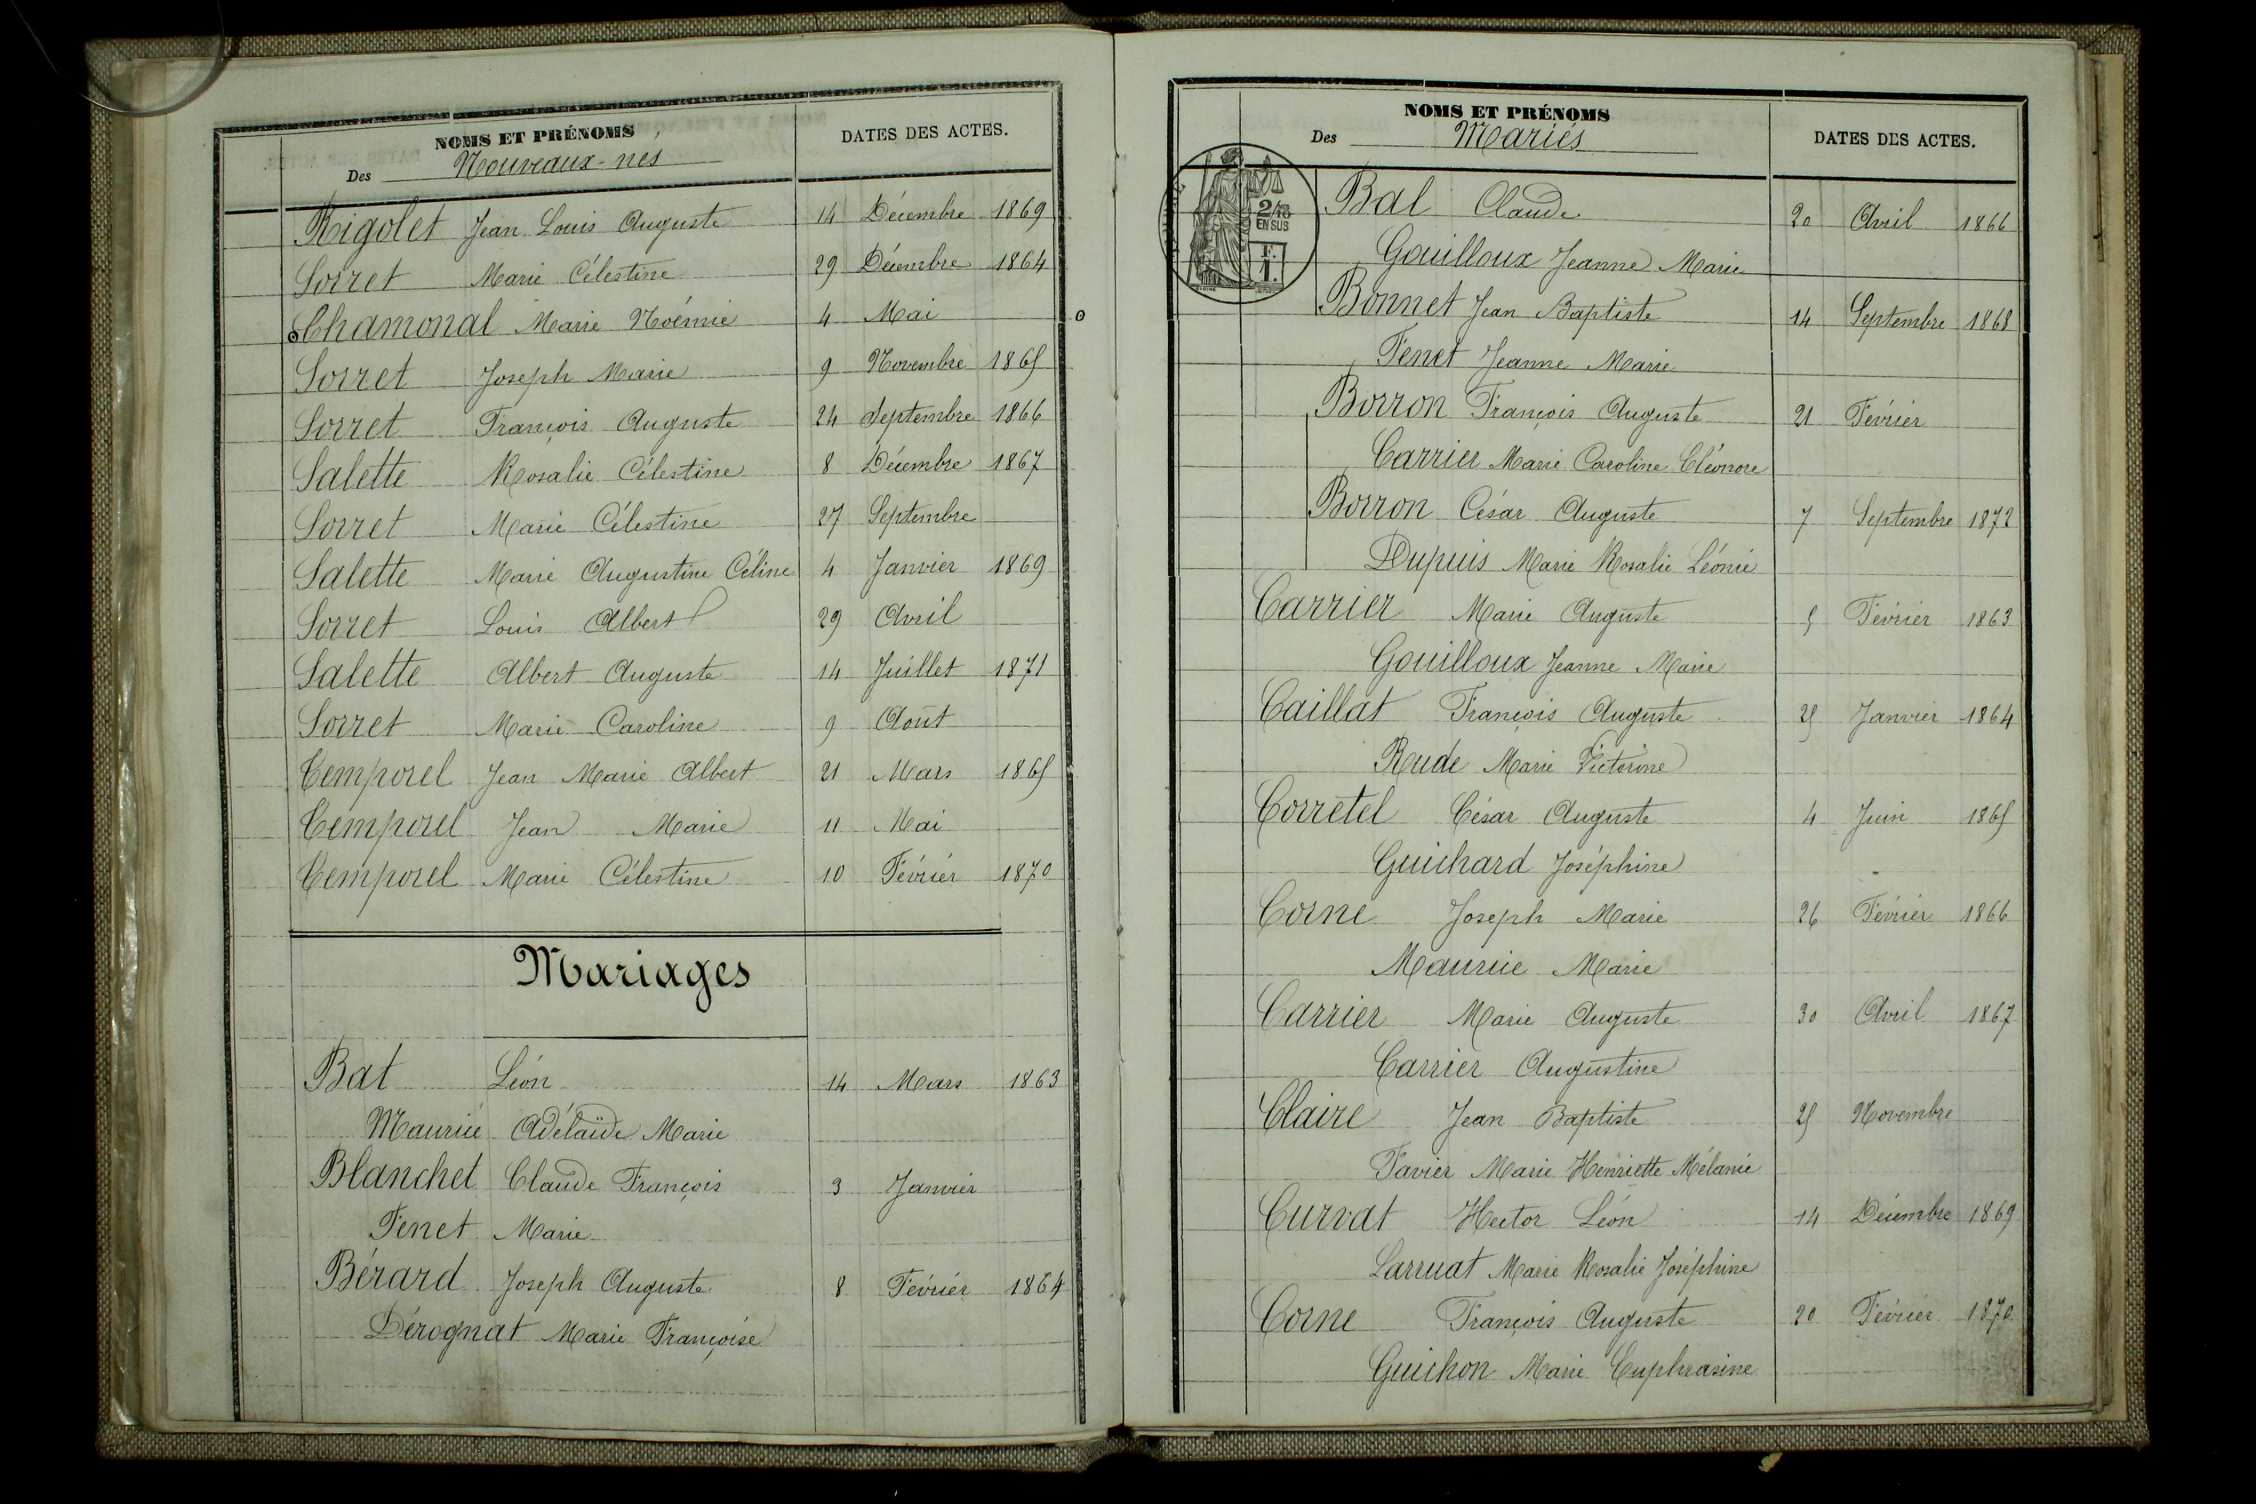 NOMS ET PRÉNOMS
Des Nouveaux-nés
DATES DES ACTES.
Rigolet Jean Louis Auguste 14 Décembre 1869
Sorret Marie Célestine 29 Décembre 1864
Chamonal Marie Noémie 4 Mai
Sorret Joseph Marie 9 Novembre 1865
Sorret François Auguste 24 Septembre 1866
Salette Rosalie Célestine 8 Décembre 1867
Sorret Marie Célestine 27 Septembre
Salette Marie Augustine Céline 4 Janvier 1869
Sorret Louis Albert 29 Avril
Salette Albert Auguste 14 Juillet 1871
Sorret Marie Caroline 9 Août
Temporel Jean Marie Albert 21 Mars 1865
Temporel Jean Marie 11 Mai
Temporel Marie Célestine 10 Février 1870
Mariages
Bat Léon 14 Mars 1863
Maurice Adélaïde Marie
Blanchet Claude François 3 Janvier
Fenet Marie
Bérard Joseph Auguste 8 Février 1864
Dérognat Marie Françoise
NOMS ET PRÉNOMS
Des Mariés
DATES DES ACTES.
2/10
EN SUS
F.
1.
Bal Claude 20 Avril 1866
Gouilloux Jeanne Marie
Bonnet Jean Baptiste 14 Septembre 1868
Fenet Jeanne Marie
Borron François Auguste 21 Février
Carrier Marie Caroline Eléonore
Borron César Auguste 7 Septembre 1872
Dupuis Marie Rosalie Léonie
Carrier Marie Auguste 5 Février 1863
Gouilloux Jeanne Marie
Caillat François Auguste 25 Janvier 1864
Rude Marie Victorine
Corretel César Auguste 4 Juin 1865
Guichard Joséphine
Corne Joseph Marie 26 Février 1866
Maurice Marie
Carrier Marie Auguste 30 Avril 1867
Carrier Augustine
Claire Jean Baptiste 25 Novembre
Favier Marie Henriette Mélanie
Curvat Hector Léon 14 Décembre 1869
Larruat Marie Rosalie Joséphine
Corne François Auguste 20 Février 1870
Guichon Marie Euphrasine